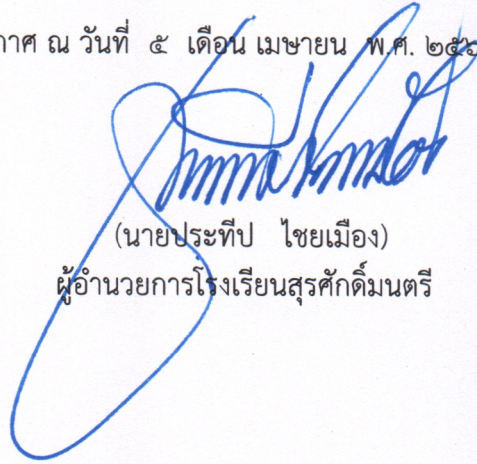 ณ วันที่ ๕ เดือน เมษายน พ.ศ.
(นายประทีป ไชยเมือง)
ผู้อำนวยการโรงเรียนสุรศักดิ์มนตรี